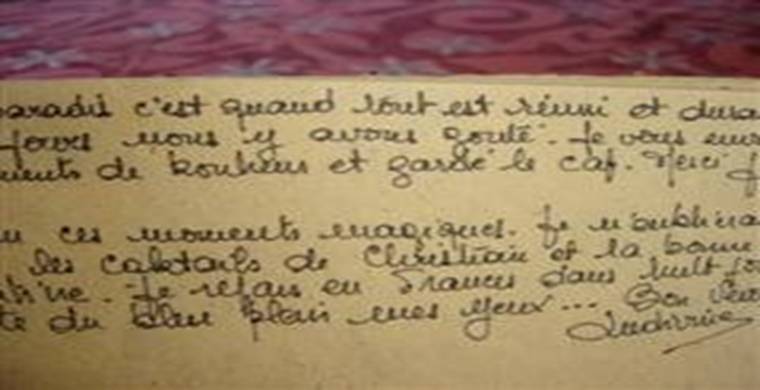 paradis c'est quand tout est réuni et dura
jours nous y avons gouté. Je vous
ments de bonheur et garde le cap. Merci
ces moments magiques. Je n'oublirai
les cocktails de Christian et la bonne
Je repars en France dans huit
du bleu plein mes yeux... Bon